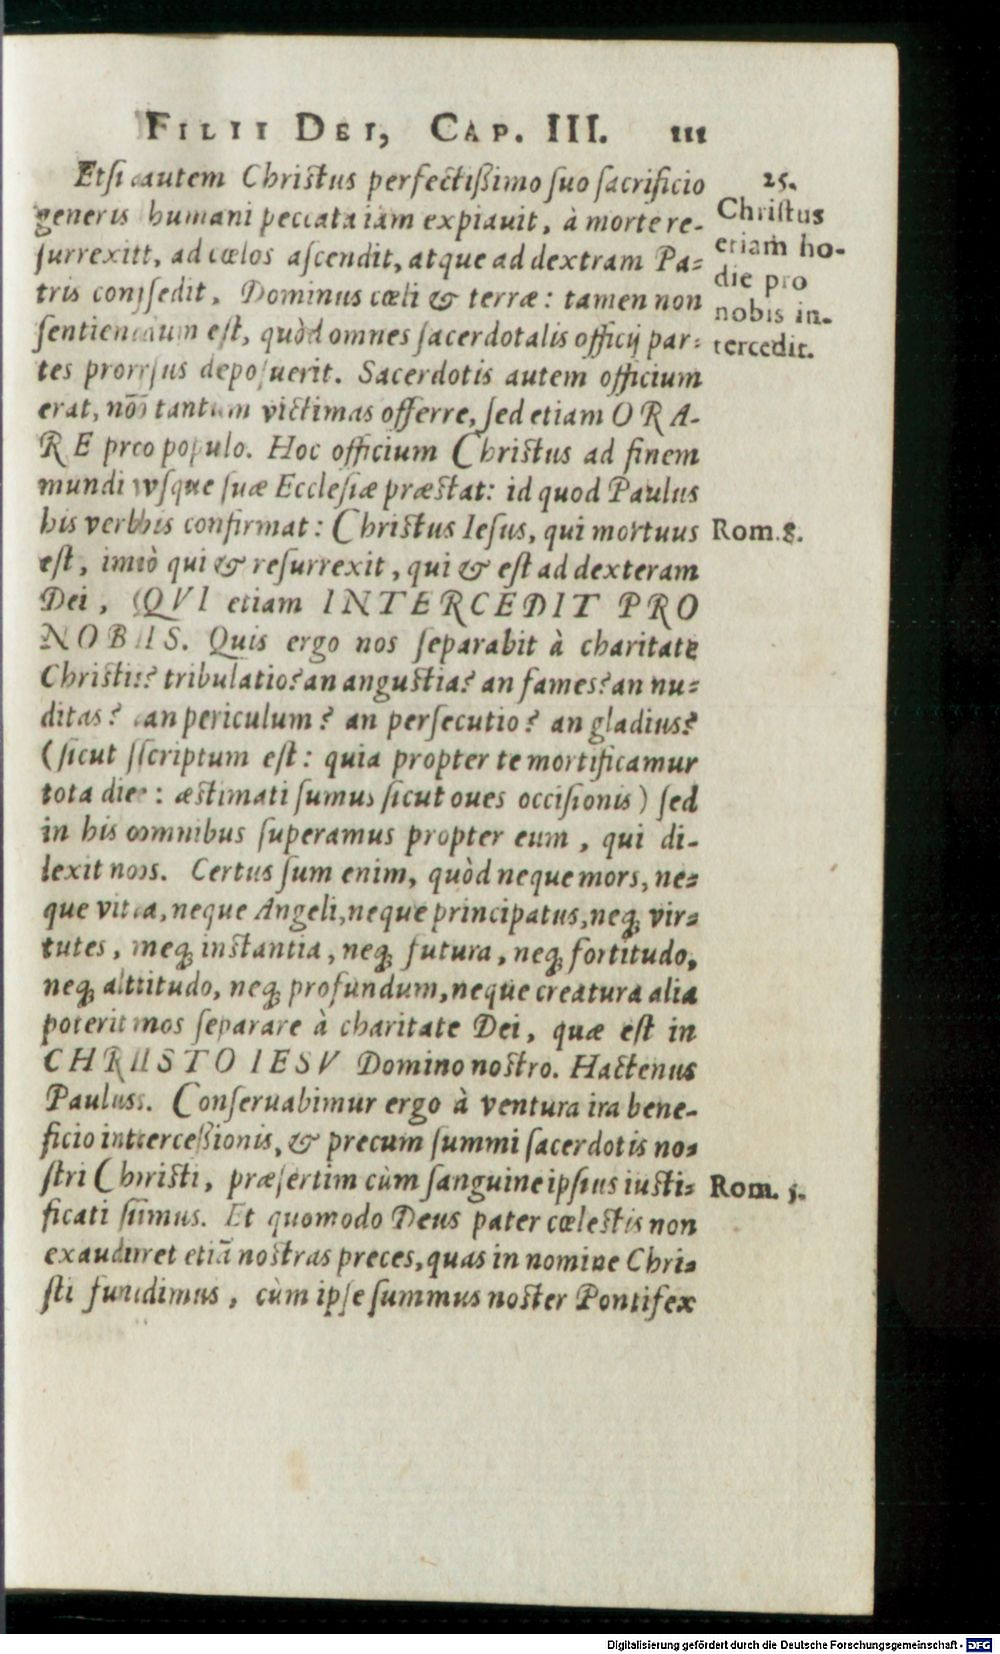 FILII DEI, CAP. III. 111
Etsi autem Christus perfectißimo suo sacrificio
generis humani peccata iam expiauit, à morte re-
surrexit, ad cœlos ascendit, atque ad dextram Pa-
tris consedit, Dominus cœli & terræ: tamen non
sentiendum est, quòd omnes sacerdotalis officij par-
tes prorsus deposuerit. Sacerdotis autem officium
erat, nō tantum victimas offerre, sed etiam ORA-
RE pro populo. Hoc officium Christus ad finem
mundi vsque suæ Ecclesiæ præstat: id quod Paulus
his verbis confirmat: Christus Iesus, qui mortuus
est, imò qui & resurrexit, qui & est ad dexteram
Dei, QVI etiam INTERCEDIT PRO
NOBIS. Quis ergo nos separabit à charitate
Christi? tribulatio? an angustia? an fames? an nu-
ditas? an periculum? an persecutio? an gladius?
(sicut scriptum est: quia propter te mortificamur
tota die: æstimati sumus sicut oues occisionis) sed
in his omnibus superamus propter eum, qui di-
lexit nos. Certus sum enim, quòd neque mors, ne-
que vita, neque Angeli, neque principatus, neq; vir-
tutes, neq; instantia, neq; futura, neq; fortitudo,
neq; altitudo, neq; profundum, neque creatura alia
poterit nos separare à charitate Dei, quæ est in
CHRISTO IESV Domino nostro. Hactenus
Paulus. Conseruabimur ergo à ventura ira bene-
ficio interceßionis, & precum summi sacerdotis no-
stri Christi, præsertim cùm sanguine ipsius iusti-
ficati simus. Et quomodo Deus pater cœlestis non
exaudiret etiā nostras preces, quas in nomine Chri-
sti fundimus, cùm ipse summus noster Pontifex
25.
Christus
etiam ho-
die pro
nobis in-
tercedit.
Rom. 8.
Rom. 5.
Digitalisierung gefördert durch die Deutsche Forschungsgemeinschaft - DFG